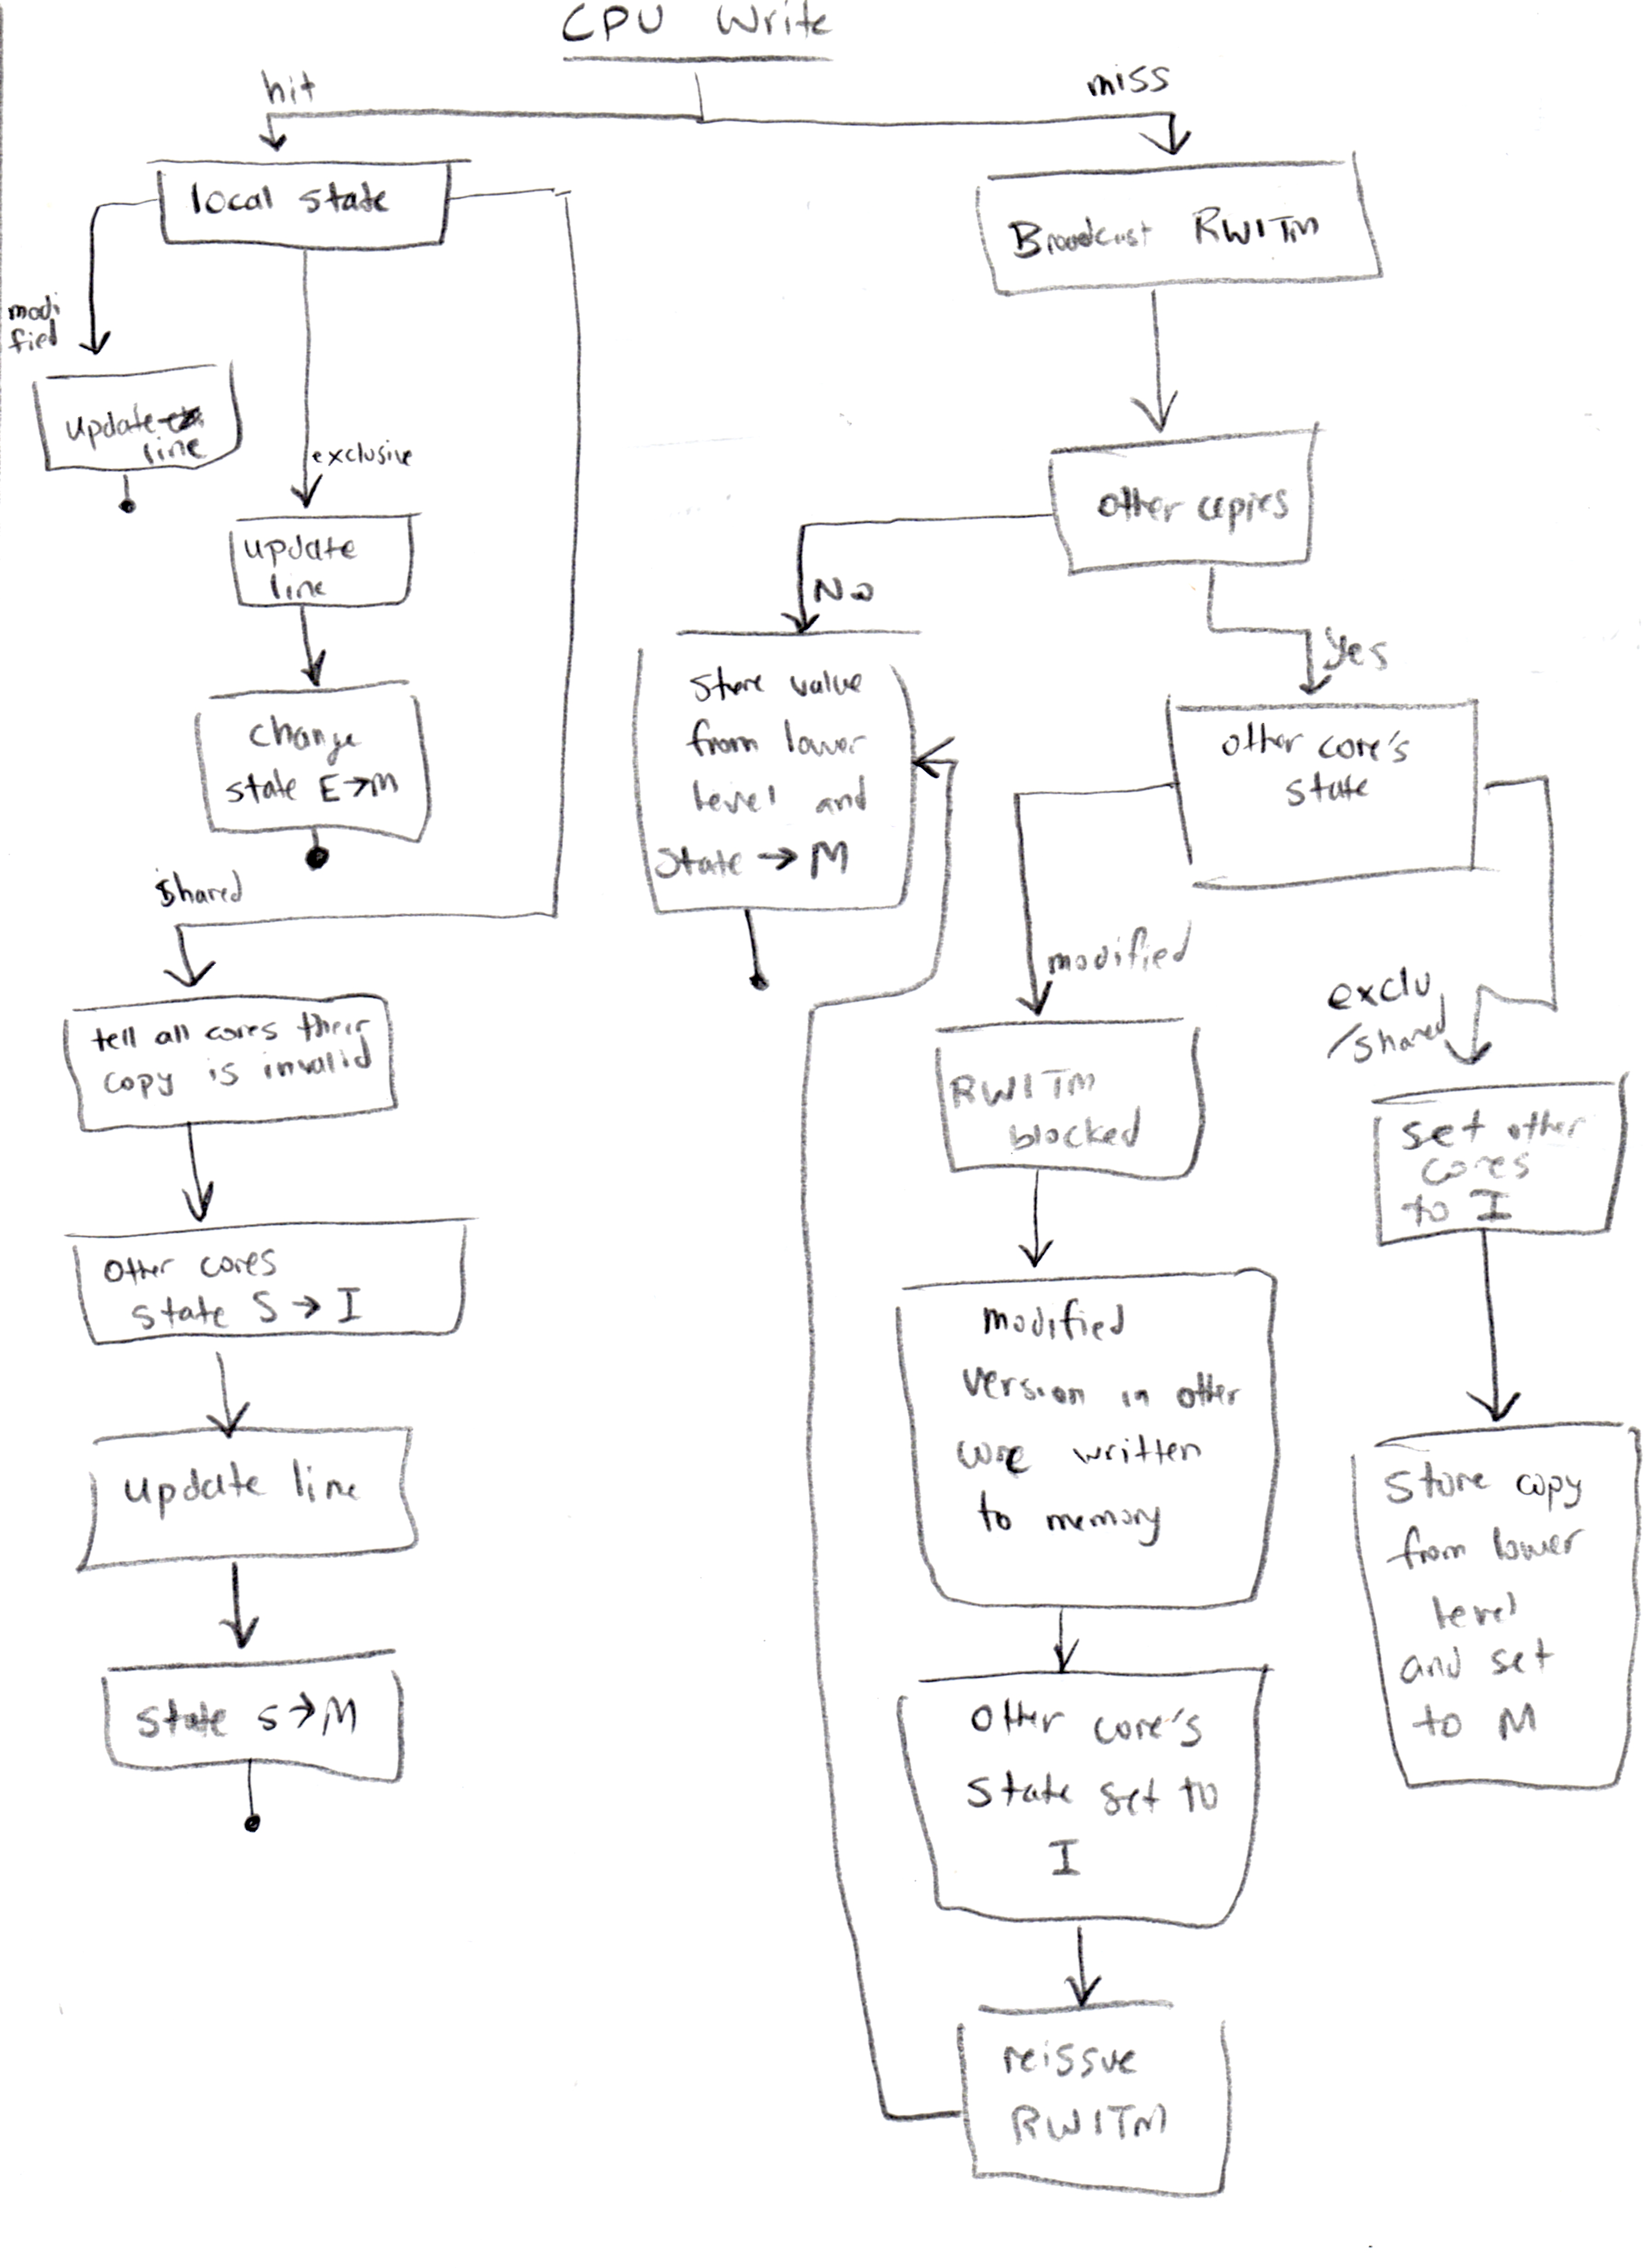 CPU Write
hit
miss
local state
modi
fied
update
line
exclusive
update
line
change
state E→M
shared
tell all cores their
copy is invalid
Other cores
state S → I
update line
state S→M
Broadcast RWITM
other copies
No
Store value
from lower
level and
State → M
Yes
other core's
state
modified
RWITM
blocked
modified
version in other
core written
to memory
Other core's
state set to
I
reissue
RWITM
exclu
/shared
set other
cores
to I
Store copy
from lower
level
and set
to M